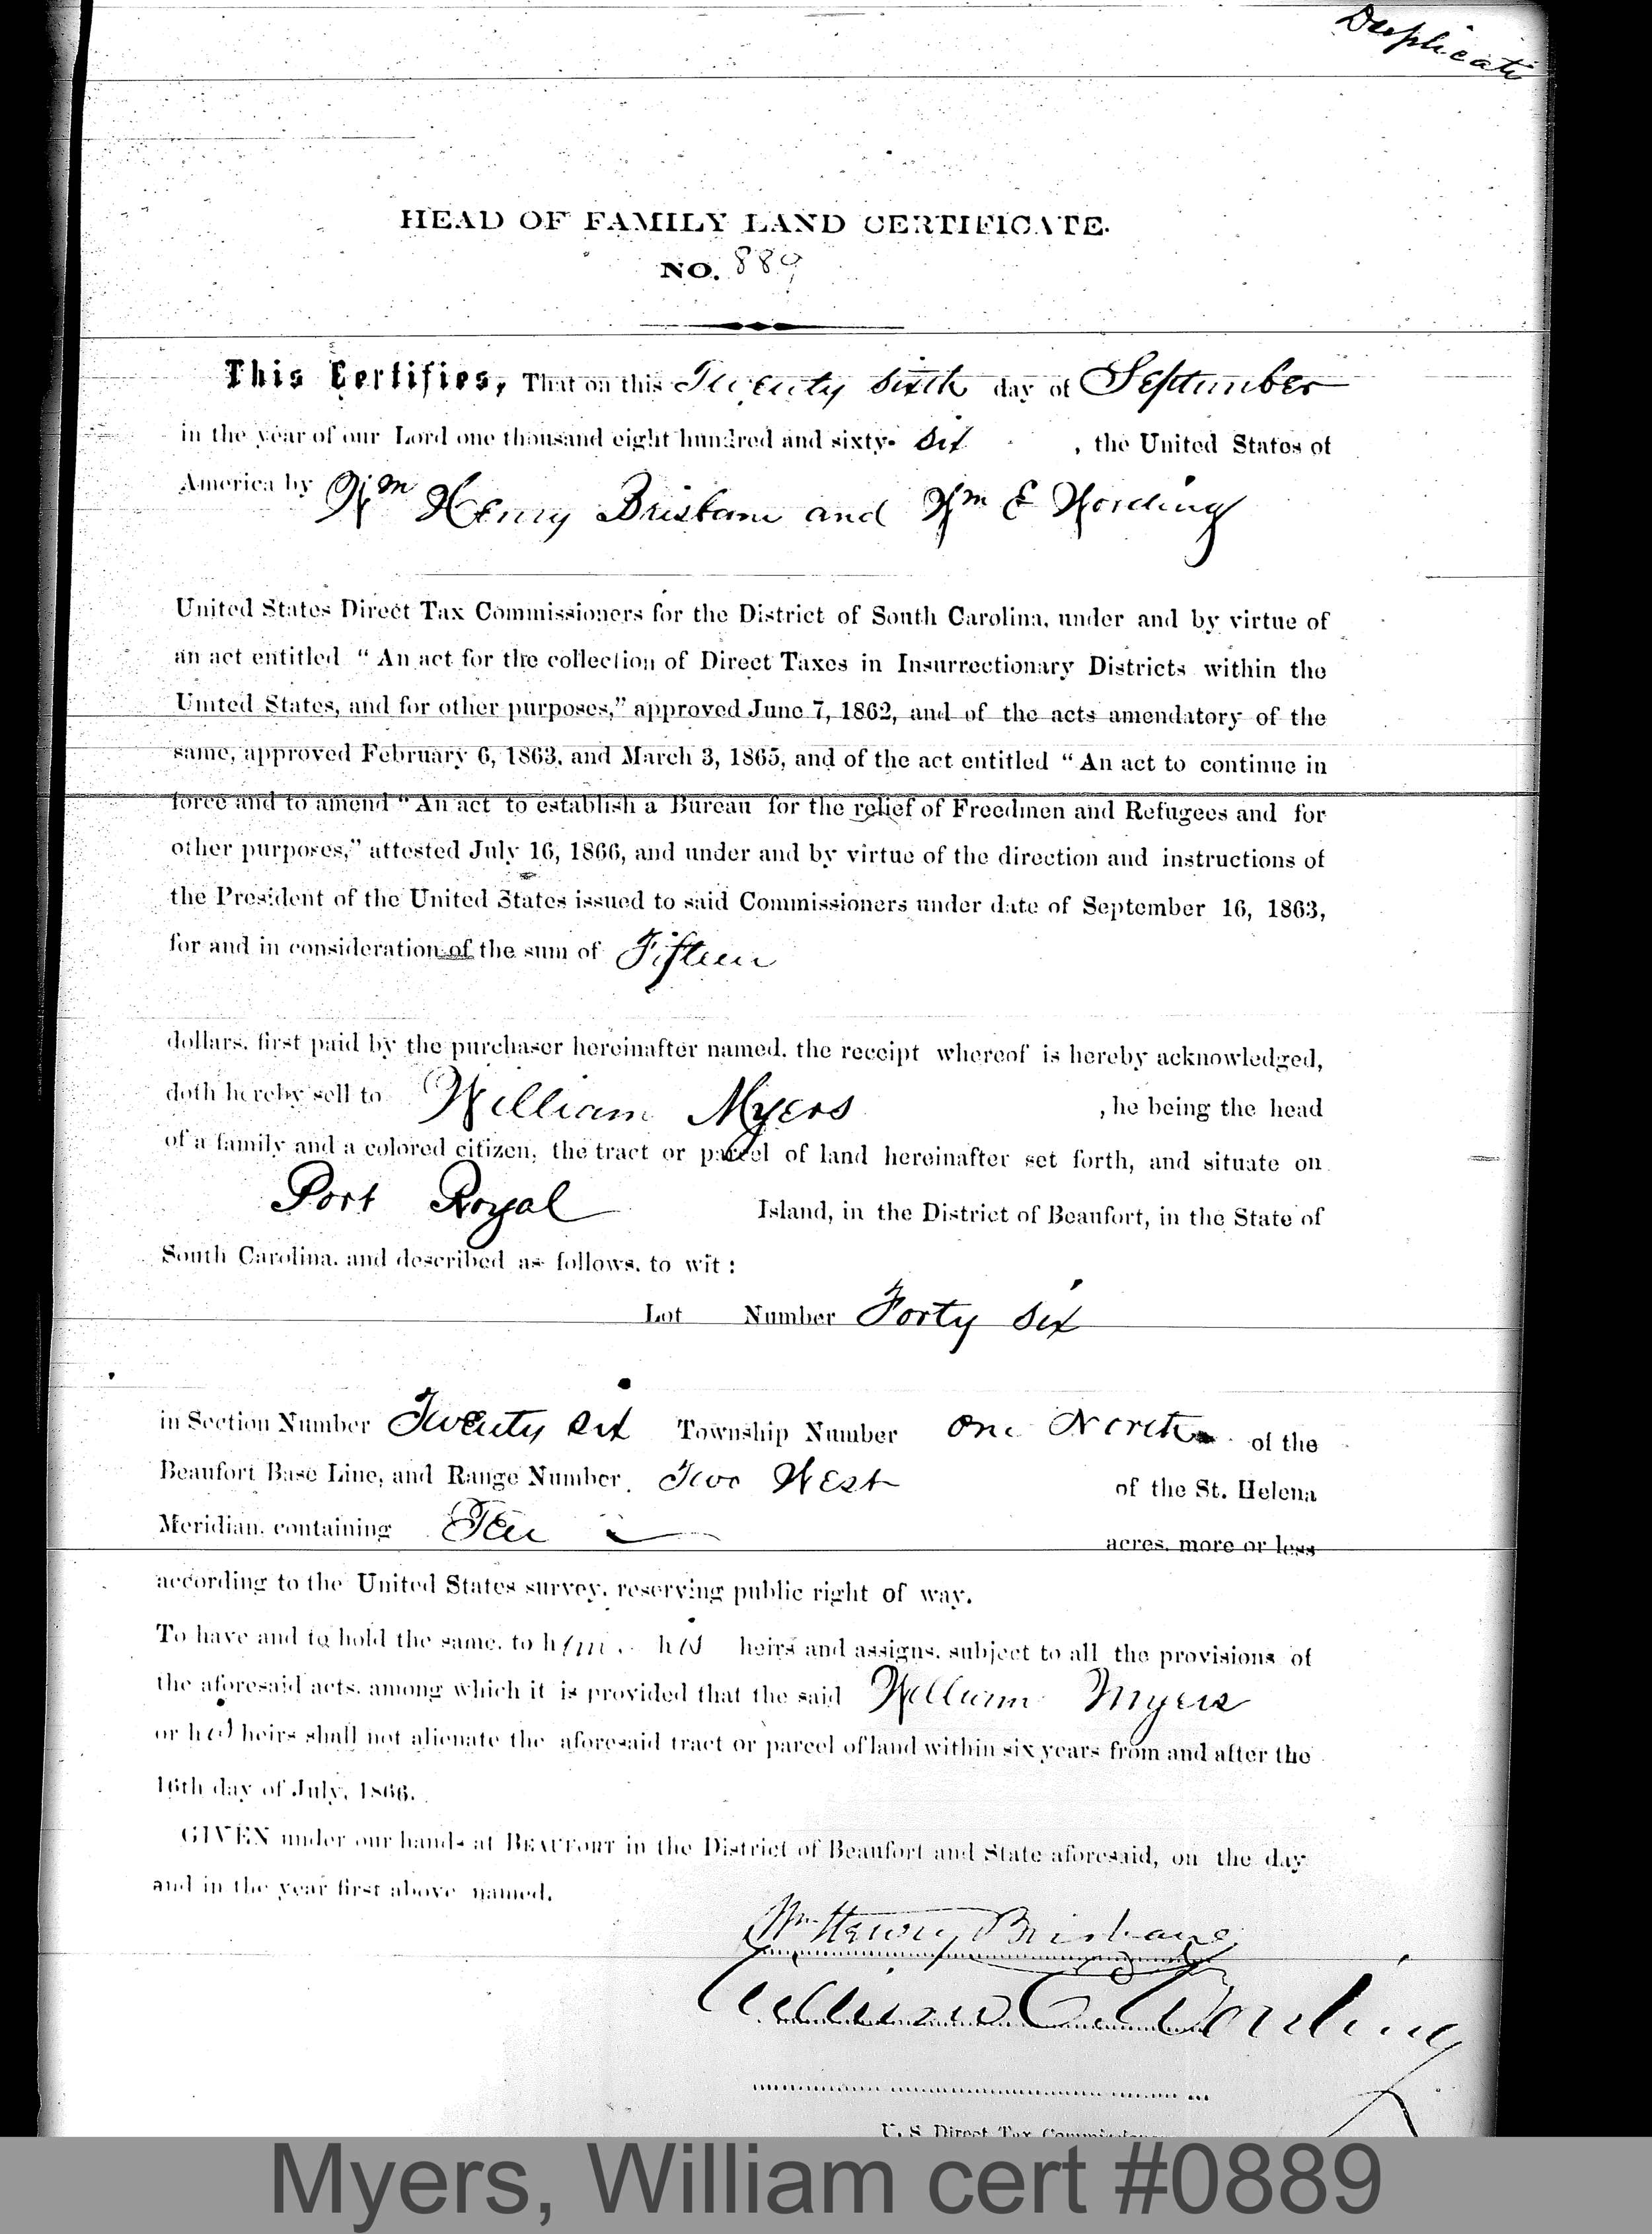 Duplicate
HEAD OF FAMILY LAND CERTIFICATE.
NO. 889
This Certifies, That on this Twenty sixth day of September
in the year of our Lord one thousand eight hundred and sixty- six , the United States of
America by Wm Henry Brisbane and Wm E Wording
United States Direct Tax Commissioners for the District of South Carolina, under and by virtue of
an act entitled "An act for the collection of Direct Taxes in Insurrectionary Districts within the
United States, and for other purposes," approved June 7, 1862, and of the acts amendatory of the
same, approved February 6, 1863, and March 3, 1865, and of the act entitled "An act to continue in
force and to amend "An act to establish a Bureau for the relief of Freedmen and Refugees and for
other purposes," attested July 16, 1866, and under and by virtue of the direction and instructions of
the President of the United States issued to said Commissioners under date of September 16, 1863,
for and in consideration of the sum of Fifteen
dollars, first paid by the purchaser hereinafter named, the receipt whereof is hereby acknowledged,
doth hereby sell to William Myers , he being the head
of a family and a colored citizen, the tract or parcel of land hereinafter set forth, and situate on
Port Royal Island, in the District of Beaufort, in the State of
South Carolina, and described as follows, to wit:
Lot Number Forty six
in Section Number Twenty six Township Number One North of the
Beaufort Base Line, and Range Number Two West of the St. Helena
Meridian, containing Ten acres, more or less
according to the United States survey, reserving public right of way.
To have and to hold the same, to him, his heirs and assigns, subject to all the provisions of
the aforesaid acts, among which it is provided that the said William Myers
or his heirs shall not alienate the aforesaid tract or parcel of land within six years from and after the
16th day of July, 1866.
GIVEN under our hands at BEAUFORT in the District of Beaufort and State aforesaid, on the day
and in the year first above named.
Wm Henry Brisbane
William E. Wording
U. S. Direct Tax Commissioners
Myers, William cert #0889